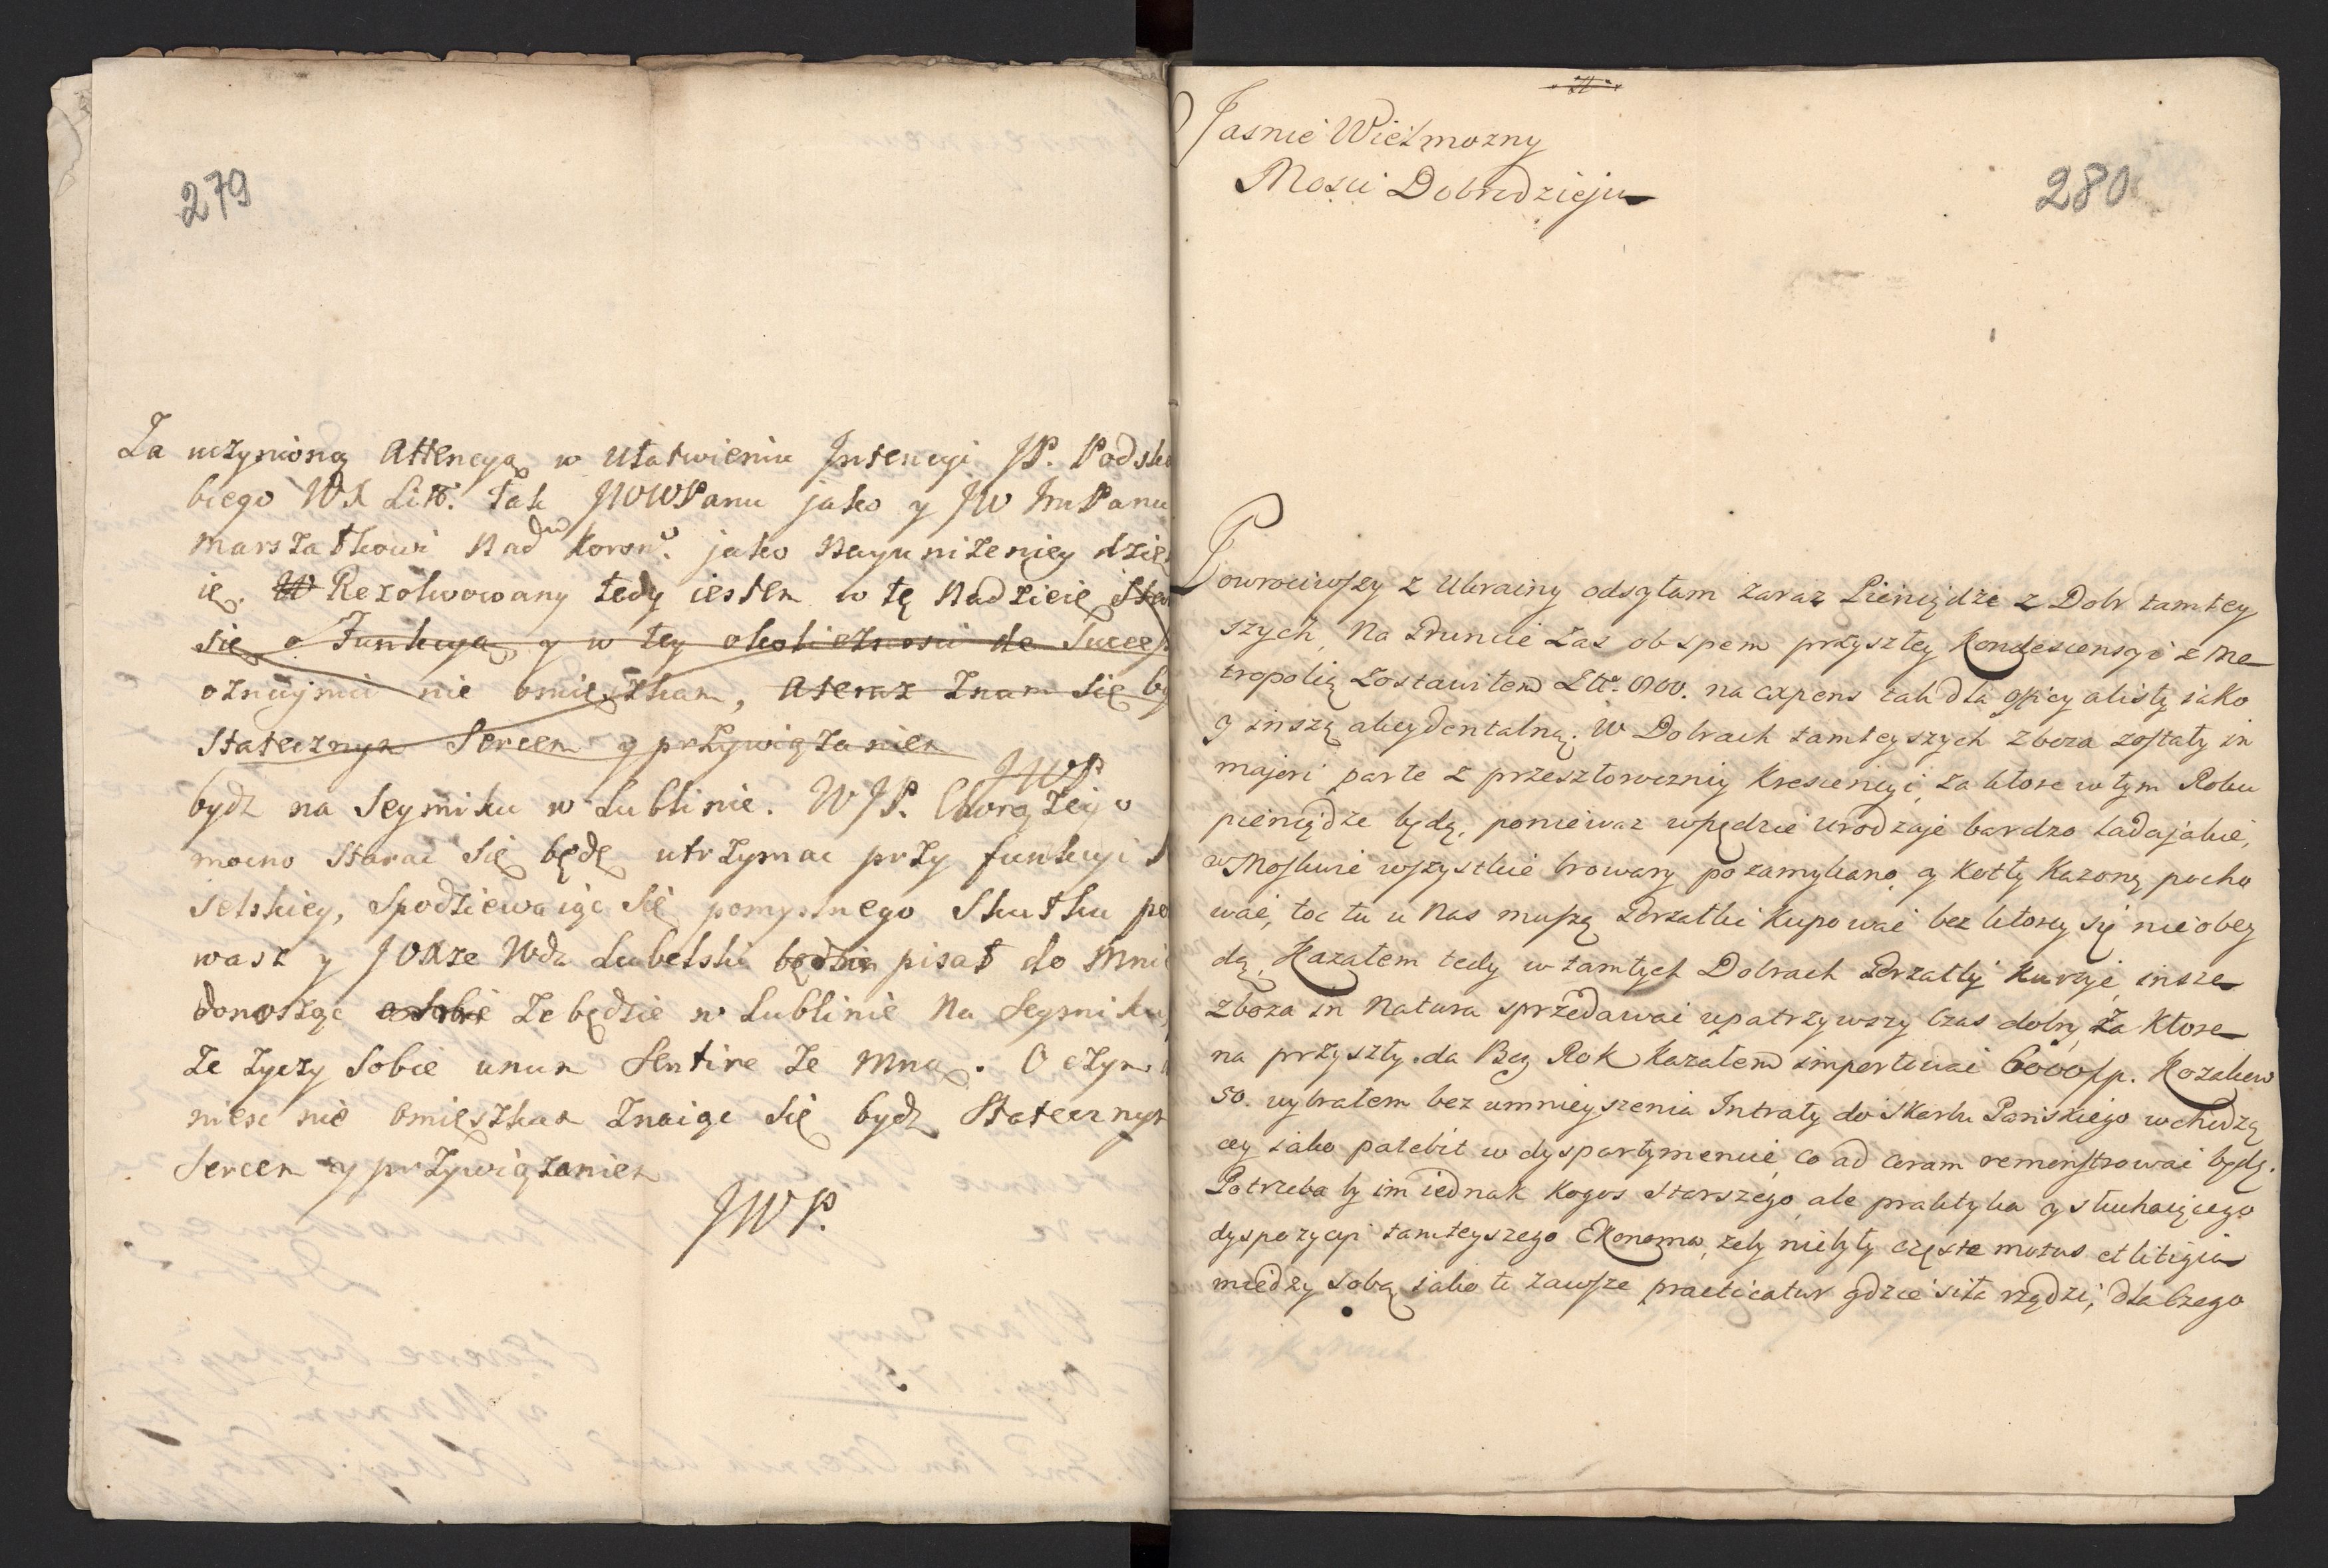 279
Za uczynioną Attencyą w Ułatwieniu Intencyi JP. Podska
biego WX Litt: Tak JWWPanu jako y JW ImPanu
Marszałkowi Nadw Koronº: jako Nayuniżeniey dzię
ię. W Rezolwowany tedy iestem w tę Nadzieię Sta
się o Funkcyą, y w tey okolicznosci de Succes
oznaymić nie omieszkam, Ateraz Znam się by
Statecznym Sercem y przywiązaniem
JWP
bydz na Seymiku w Lublinie. WJP. Chorążego
mocno Starac Się będę utrzymac przy funkcyi
selskiey, Spodziewaiąc Się pomyslnego Skutku po
wasz y JOXze Wda Lubelski będzie pisał do Mnie
donosząc o Sobie Ze będzie w Lublinie Na Seymiku,
Ze życzy Sobie unum Sentire Ze Mną. O czym
niesc nie Omieszkam Znaiąc Się bydz Statecznym
Sercem y przywiązaniem
JWP.
280
Jasnie Wielmozny
Mosci Dobrodzieju
Powrociwszy z Ukrainy odsyłam zaraz Pieniądze z Dobr tamtey
szych, Na Gruncie Zas ob spem przyszłey Kondescensyi z Me
tropolią Zostawiłem na expens tak dla officyalisty iako
y inszą akcydentalną. W Dobrach tamteyszych zboza zostały in
majori parte z przeszłoroczniy Krescencyi, za ktore w tym Roku
pieniądze będą, poniewaz wszędzie urodzaje bardzo ladajakie,
w Moskwie wszystkie browary pozamykano y Kotły Kazoną pocho
wać, toc tu u Nas muszą Gorzałki Kupować bez ktorey się nie obey
dą, Kazałem tedy w tamtych Dobrach Gorzałky Kurzyć, insze
zboza in Natura sprzedawać upatrzywszy Czas dobry, Za Ktore
na przyszły da Bog Rok Kazałem importować 6000 fp. Kozakow
50. wybrałem bez umnieyszenia Intraty do Skarbu Panskiego wchodzą
cey iako patebit w dyspartymencie, co ad coram remonstrować będę.
Potrzeba by im iednak Kogos Starszego, ale praktyka y słuchaiącego
dyspozycyi tamteyszego Ekonoma, zeby niebyły częste motus et litigia
miedzy sobą iako to zawsze practicatur gdzie siła rządzi, dla Czego